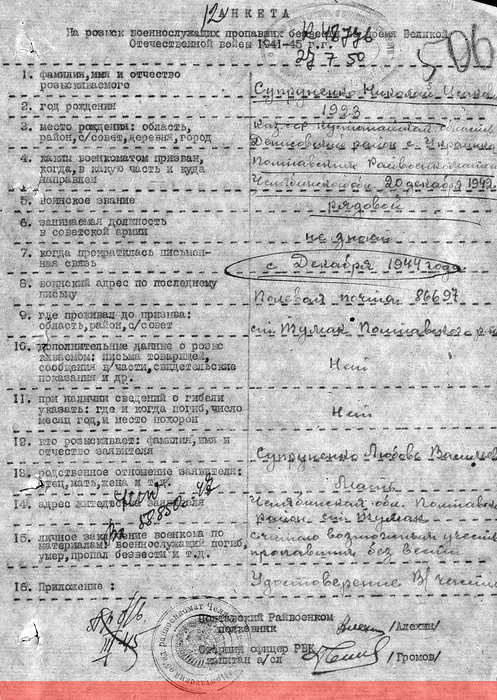 АНКЕТА
На розыск военнослужащих пропавших безвести во время Великой
Отечественной войны 1941-45 г.г.
27 7.50
506
1. фамилия,имя и отчество
розыскиваемого
Супруненко Николай
2. год рождения
1923
3. место рождения: область,
район,с/совет,деревня,город
Каз.сср Кустанайская область
район с. Украинка
4. каким военкоматом призван,
когда,в какую часть и куда
направлен
Полтавским Райвоенкоматом
Челябинской обл. 20 декабря 1942
5. воинское звание
рядовой
6. занимаемая должность
в советской армии
не знаю
7. когда прекратилась письмен-
ная связь
с Декабря 1944 года
8. воинский адрес по последнему
письму
Полевая почта 86697
9. где проживал до призыва:
область,район,с/совет
ст. Тумак Полтавского
10. дополнительные данные о розыс
киваемом: письма товарищей,
сообщения в/части,свидетельские
показания и др.
Нет
11. при наличии сведений о гибели
указать: где и когда погиб,число
месяц год,и место похорон
Нет
12. кто розыскивает: фамилия,имя и
отчество заявителя
Супруненко Любовь
13. родственное отношение заявителя:
отец,мать,жена и т.д.
Мать
14. адрес жительства заявителя
Челябинская обл. Полтавский
район ст. Тумак
15. личное заключение военкома по
материалам: военнослужащий погиб,
умер,пропал безвести и т.д.
считаю возможным учесть
пропавшим без вести
16. Приложение :
Удостоверение В/части
Полтавский Райвоенком
полковник /Алехин/
Старший офицер РВК
капитан а/сл /Громов/